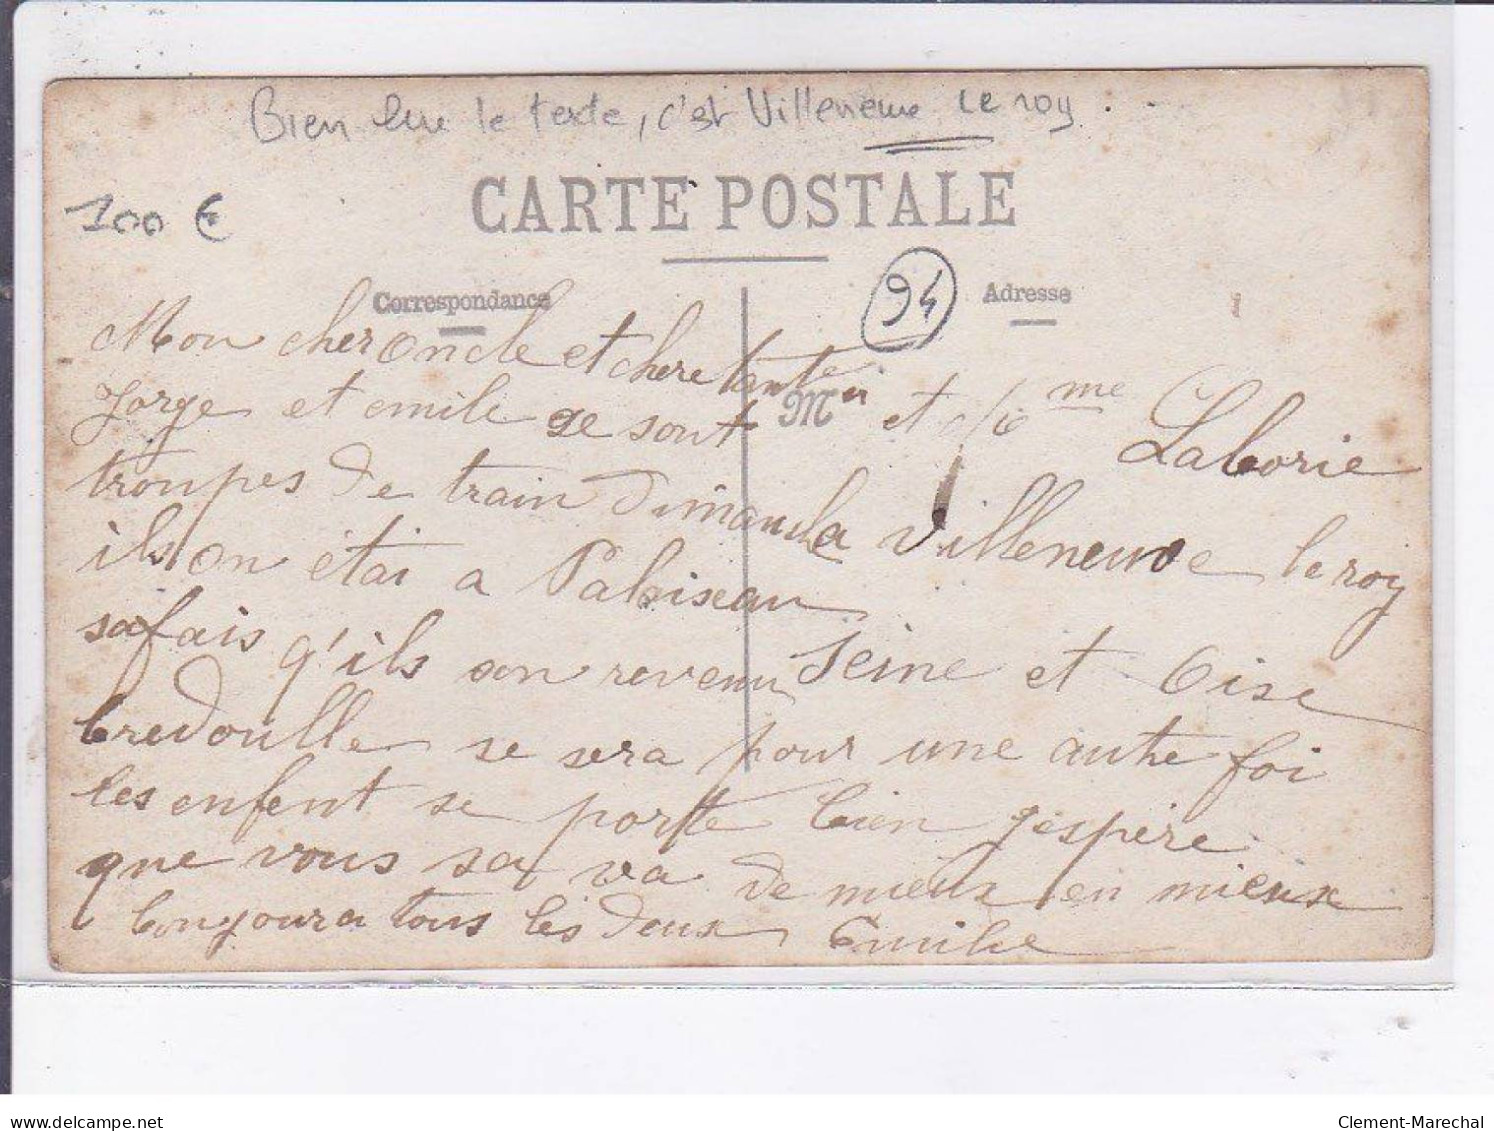 Bien lire le texte, c'est Villeneuve Le roy.
100 €
CARTE POSTALE
94
Correspondance
Adresse
Mon cher oncle et chere tante
Jorge et emile se sont
troupes de train Dimanche
ils on étai a Palaiseau
safais q'ils son revenu
bredoulle se sera pour une autre foi
les enfent se porte bien j'espère
que vous sa va de mieux en mieux
bonjour a tous les deux Emile
Mr et Mme
Laborie
Villeneuve le roy
Seine et Oise
delcampe.net
Clement-Marechal